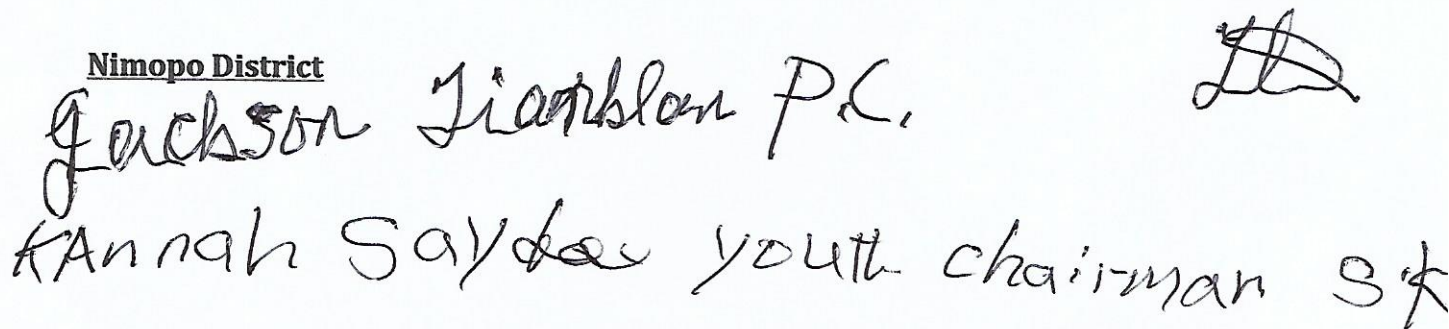 Nimopo District
Jackson P.C.
KAnnah Saydee youth chairman SK